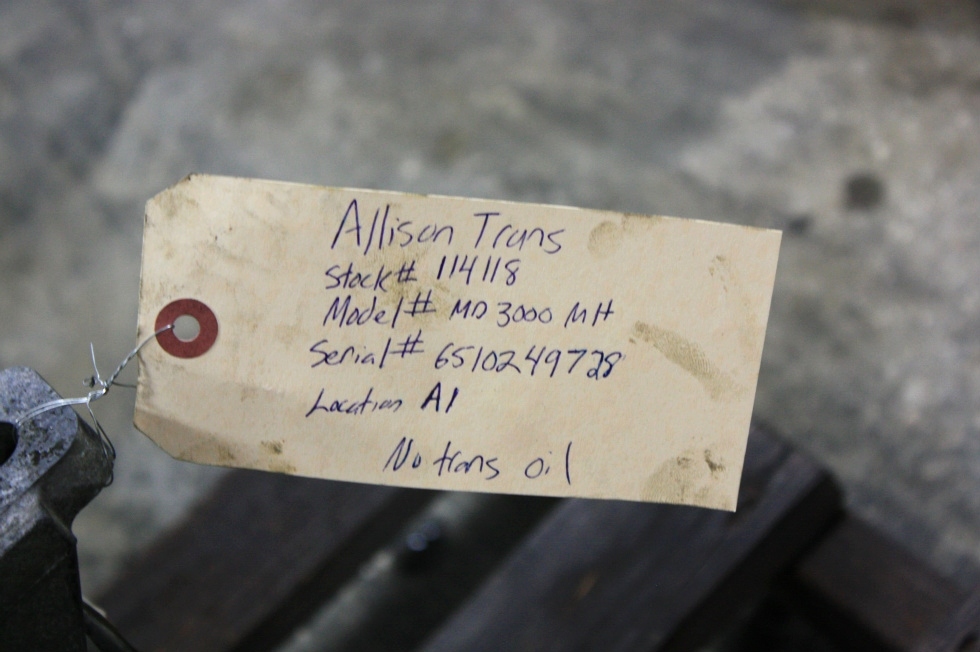 Allison Trans
Stock# 114118
Model# MD 3000 MH
Serial# 6510249728
Location A1
No trans oil